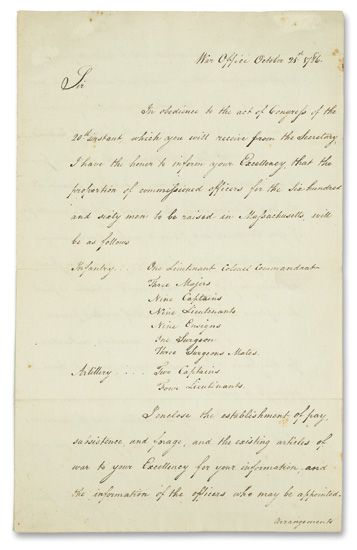 War Office October 21st 1786.
Sir
In obedience to the act of Congress of the
20th instant, which you will receive from the Secretary,
I have the honor to inform your Excellency, that the
proportion of commissioned officers for the Six hundred
and sixty men to be raised in Massachusetts, will
be as follows
Infantry . . . One Lieutenant Colonel Commandant
Three Majors
Nine Captains
Nine Lieutenants
Nine Ensigns
One Surgeon
Three Surgeons Mates.
Artillery . . . . Two Captains
Four Lieutenants.
I enclose the establishment of pay,
subsistence, and forage, and the existing articles of
war to your Excellency for your information, and
the information of the officers who may be appointed.
Arrangements